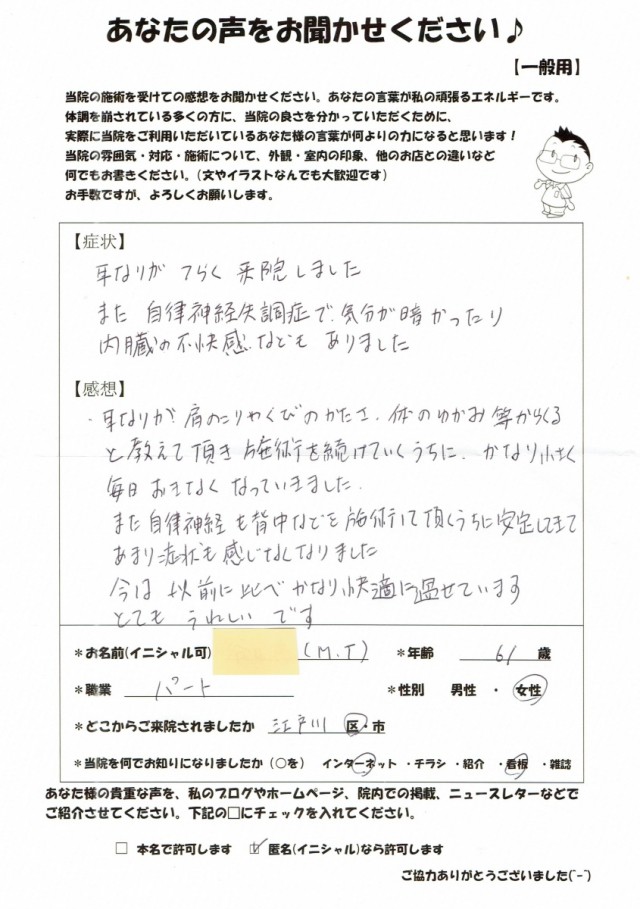 あなたの声をお聞かせください♪
【一般用】
当院の施術を受けての感想をお聞かせください。あなたの言葉が私の頑張るエネルギーです。
体調を崩されている多くの方に、当院の良さを分かっていただくために、
実際に当院をご利用いただいているあなた様の言葉が何よりの力になると思います！
当院の雰囲気・対応・施術について、外観・室内の印象、他のお店との違いなど
何でもお書きください。（文やイラストなんでも大歓迎です）
お手数ですが、よろしくお願いします。
【症状】
耳なりが つらく 来院しました
また 自律神経失調症で、気分が暗かったり
内臓の不快感なども ありました
【感想】
・耳なりが、肩のこりやくびのかたさ、体のゆがみ等からくる
と教えて頂き 施術を続けていくうちに、かなり小さく
毎日 おきなくなっていきました。
また自律神経も背中などを施術して頂くうちに安定してきて
あまり症状も感じなくなりました
今は 以前に比べ かなり快適に過せています
とても うれしい です
＊お名前(イニシャル可) (M.T) ＊年齢 61 歳
＊職業 パート ＊性別 男性 ・ 女性
＊どこからご来院されましたか 江戸川 区・市
＊当院を何でお知りになりましたか（○を） インターネット ・チラシ ・紹介 ・看板 ・雑誌
あなた様の貴重な声を、私のブログやホームページ、院内での掲載、ニュースレターなどで
ご紹介させてください。下記の□にチェックを入れてください。
□ 本名で許可します ☑ 匿名(イニシャル)なら許可します
ご協力ありがとうございました(^-^)